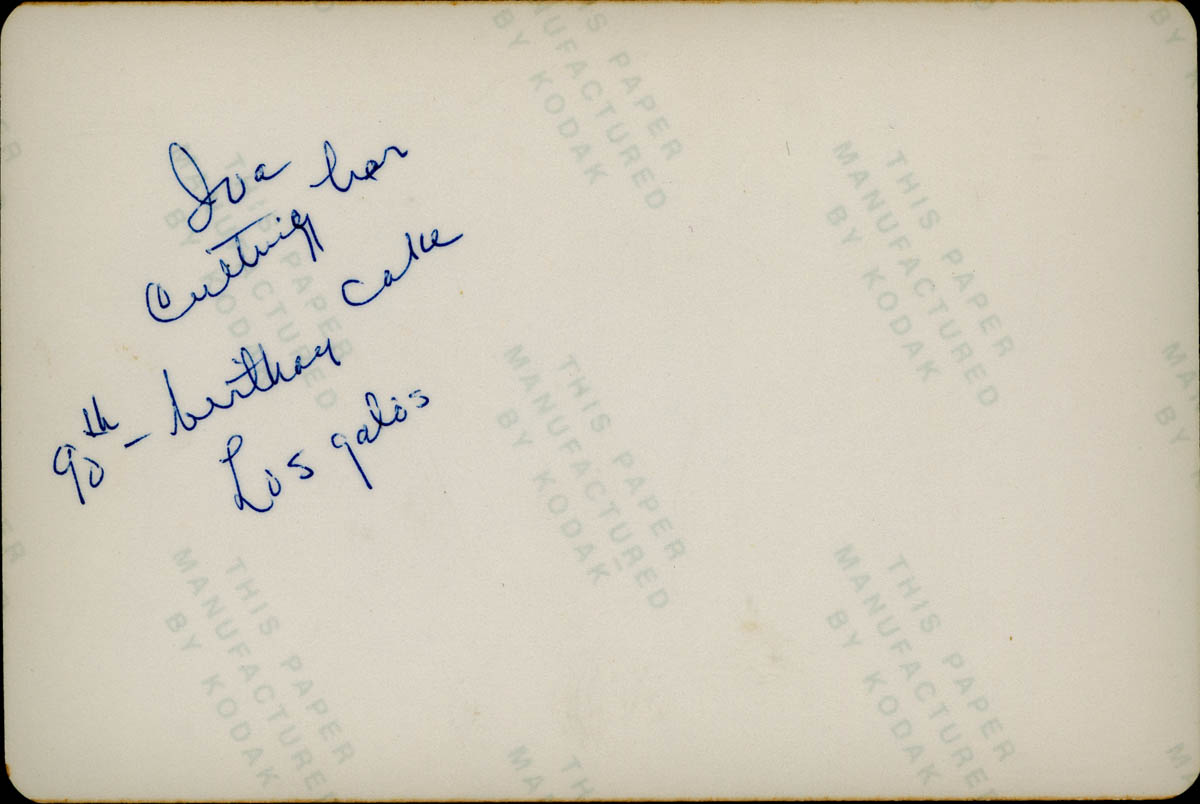 Iva
cutting her
90th - birthay cake
Los gatos
THIS PAPER
MANUFACTURED
BY KODAK
THIS PAPER
MANUFACTURED
BY KODAK
THIS PAPER
MANUFACTURED
BY KODAK
THIS PAPER
MANUFACTURED
BY KODAK
THIS PAPER
MANUFACTURED
BY KODAK
THIS PAPER
MANUFACTURED
BY KODAK